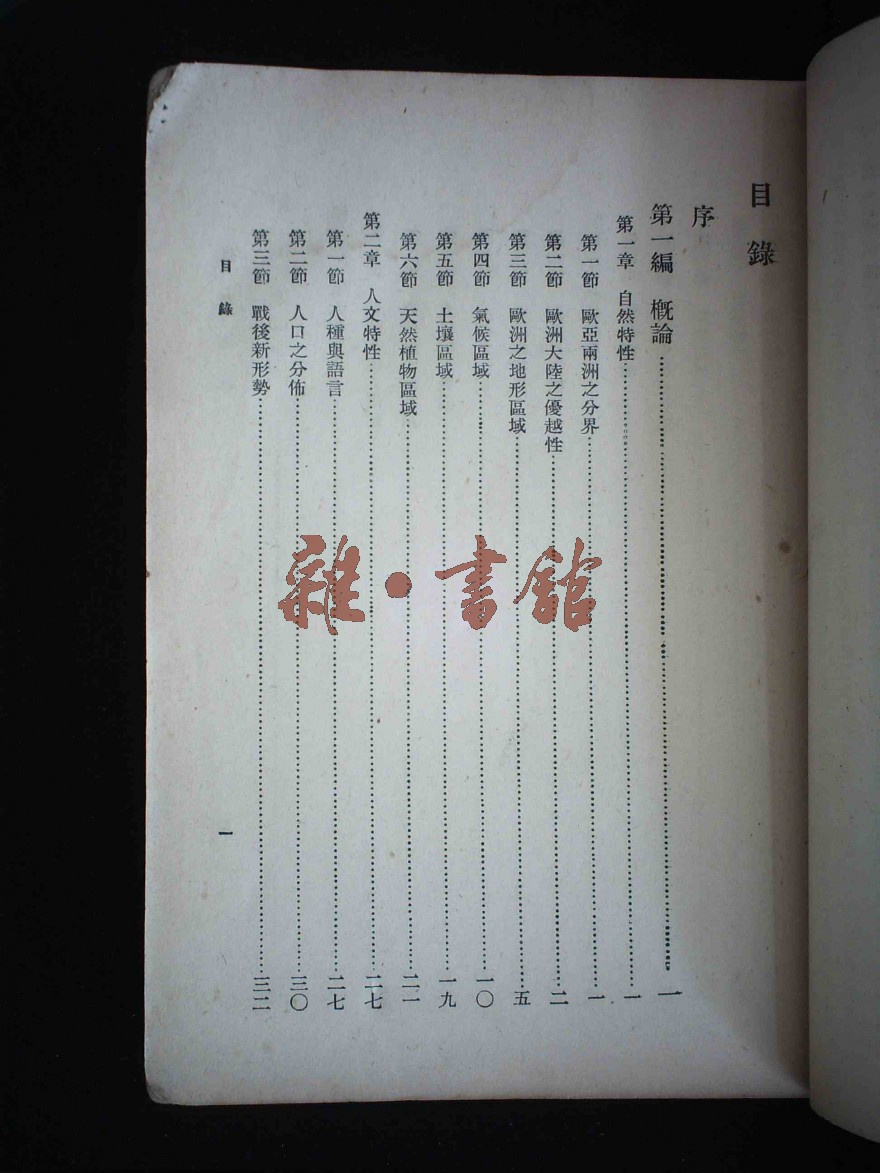 目錄
序
第一編 概論……一
第一章 自然特性……一
第一節 歐亞兩洲之分界……一
第二節 歐洲大陸之優越性……二
第三節 歐洲之地形區域……五
第四節 氣候區域……一〇
第五節 土壤區域……一九
第六節 天然植物區域……二一
第二章 人文特性……二七
第一節 人種與語言……二七
第二節 人口之分佈……三〇
第三節 戰後新形勢……三二
目錄 一
雜·書館